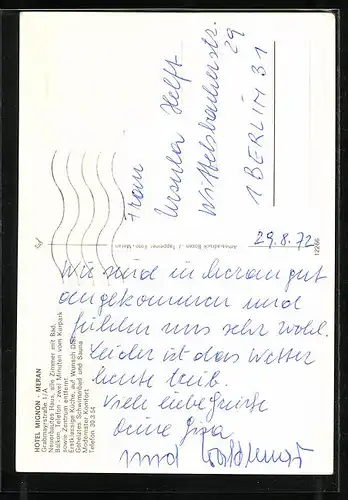 HOTEL MIGNON - MERAN
Grabmayrstraße 1/A
Neuerbautes Haus, alle Zimmer mit Bad,
Balkon, Telefon - zwei Minuten vom Kurpark
sowie Zentrum entfernt.
Erstklassige Küche, auf Wunsch Diät
Geheiztes Schwimmbad und Sauna
Modernster Komfort
Telefon 30.3.54
Frau
Ursula Helft
Wittelsbacherstr.
29
1 BERLIN 31
J. Tappeiner Foto, Meran
12266
29.8.72
Wir sind in Meran gut
angekommen und
fühlen uns sehr wohl.
Leider ist das Wetter
heute trüb.
Viele liebe Grüsse
deine
und